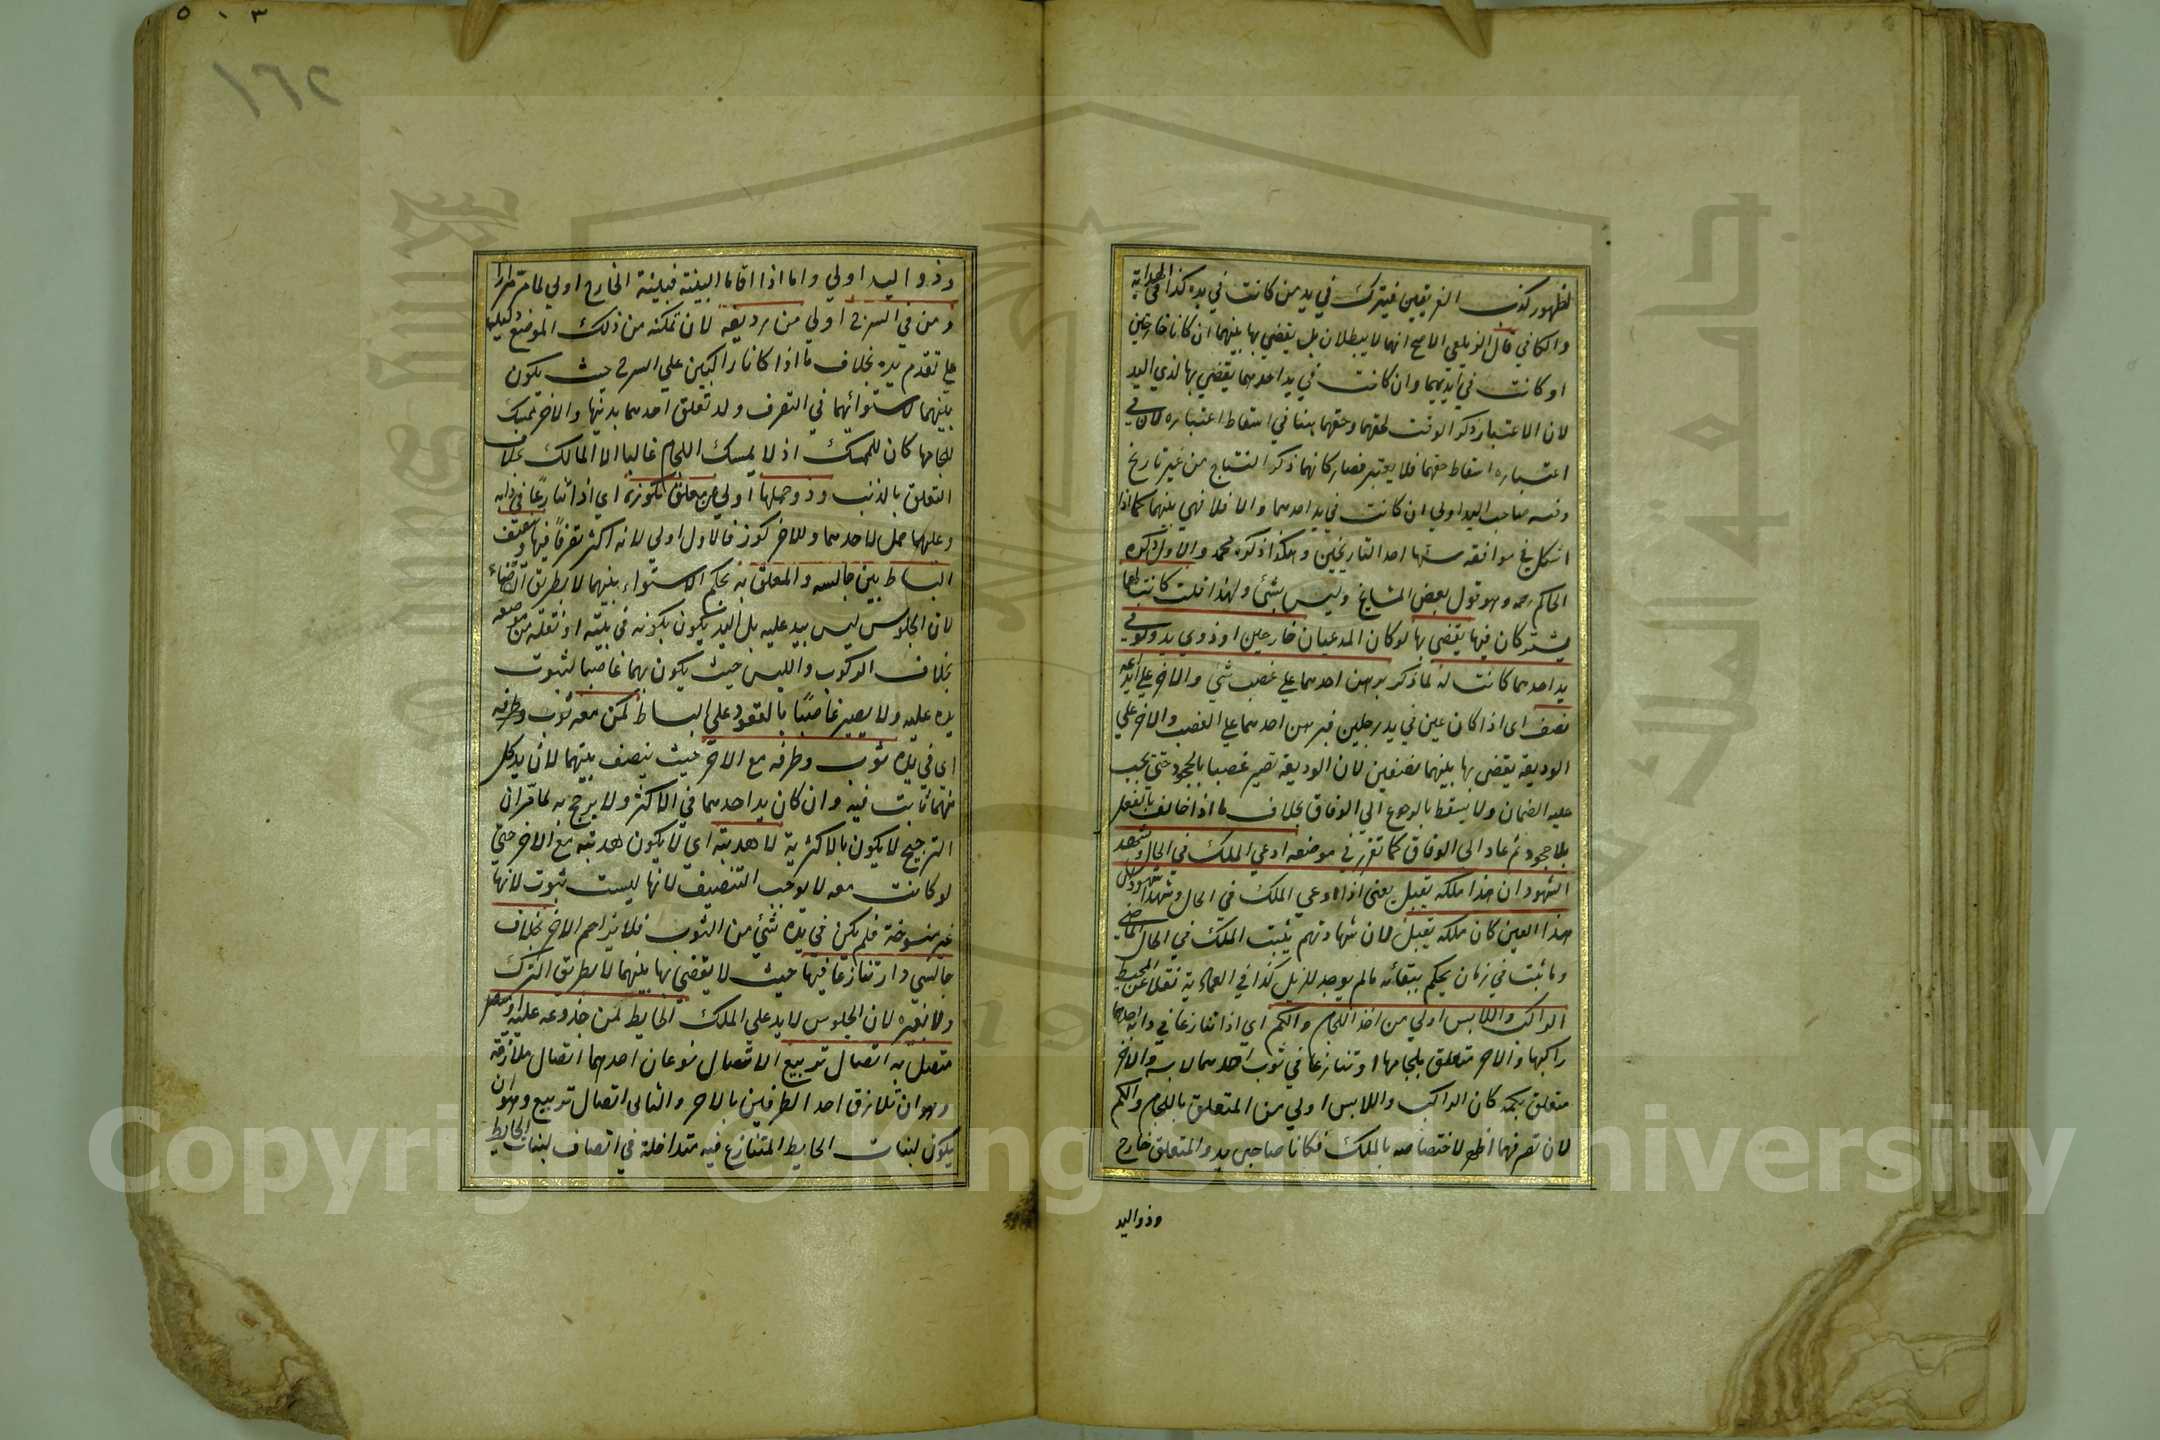 لظهور كذب الفريقين فيترك في يد من كانت في يده كذا في الهداية
والكافي قال الزيلعي الاصح انهما لا يبطلان بل يقضي بها بينهما ان كانا خارجين
او كانت في ايديهما وان كانت في يد احدهما يقضي بها لذي اليد
لان الاعتبار ذكر الوقت لحقهما وحقهما هنا في اسقاط اعتباره لان في
اعتباره اسقاط حقهما فلا يعتبر فصار كانهما ذكرا النتاج من غير تاريخ
وفيه صاحب اليد اولي ان كانت في يد احدهما والا فلا فهي بينهما كما اذا
اشكل في موافقه سنها احد التاريخين وهكذا ذكره محمد والاول ذكره
الحاكم رحمه وهو قول بعض المشايخ وليس بشئ ولهذا قلت كانت لهما
يشتركان فيها يقضي بها لو كان المدعيان خارجين او ذوي يد ولو في
يد احدهما كانت له لما ذكر برهن احدهما علي غصب شئ والاخر علي ايداعه
نصف اي اذا كان عين في يد رجلين فبرهن احدهما علي الغصب والاخر علي
الوديعة يقضي بها بينهما نصفين لان الوديعة تصير غصبا بالجحود حتي يجب
عليه الضمان ولا يسقط بالرجوع الي الوفاق بخلاف ما اذا خالف بالفعل
بلا جحود ثم عاد الى الوفاق كما تقرر في موضعه ادعي الملك في الحال وشهد
الشهود ان هذا ملكه يقبل يعني اذا ادعي الملك في الحال وشهدا شهود ان
هذا العين كان ملكه يقبل لان شهادتهم يثبت الملك في الحال الماضي
وما ثبت في زمان يحكم ببقائه مالم يوجد المزيل كذا في العمادية نقلا عن المحيط
الراكب واللابس اولي من اخذ اللجام والكم اي اذا تنازعا في دابة احدهما
راكبها والاخر متعلق بلجامها او تنازعا في ثوب احدهما لابسه والاخر
متعلق بكمه كان الراكب واللابس اولي من المتعلق باللجام والكم
لان تصرفهما اظهر لاختصاصه بالملك فكانا صاحبي يد والمتعلق خارج
وذو اليد
٥٠٣
١٦٢
وذو اليد اولي واما اذا اقاما البينة فبينة الخارج اولي لما مر مرارا
ومن في السرج اولي من رديفه لان تمكنه من ذلك الموضع دليل
علي تقدم يده بخلاف ما اذا كانا راكبين علي السرج حيث يكون
بينهما لاستوائهما في التصرف ولو تعلق احدهما بذنبها والاخر تمسك
لجامها كان للممسك اذ لا يمسك اللجام غالبا الا المالك بخلاف
التعلق بالذنب وذو حملها اولي من معلق كوزه اي اذا تنازعا في دابة
وعليها حمل لاحدهما وللاخر كوز فالاول اولي لانه اكثر تصرفا فيها ونصف
البساط بين جالسه والمعلق به بحكم الاستواء بينهما لا بطريق القضاء
لان الجلوس ليس بيد عليه بل اليد يكون بكونه في بيته او نقله من موضعه
بخلاف الركوب واللبس حيث يكون بهما غاصبا لثبوت
يده عليه ولا يصير غاصبا بالقعود علي البساط كمن معه ثوب وطرفه
اي في يده ثوب وطرفه مع الاخر حيث ينصف بينهما لان يد كل
منهما ثابت فيه وان كان يد احدهما في الاكثر ولا يرجح به لما مر ان
الترجيح لا يكون بالاكثرية لا هدبته اي لا يكون هدبته مع الاخر حتي
لو كانت معه لا يوجب التنصيف لانها ليست بثوب لانها
غير منسوجة فلم يكن في يده شئ من الثوب فلا يزاحم الاخر بخلاف
جالسي دار تنازعا فيها حيث لا يقضي بها بينهما لا بطريق الترك
ولا بغيره لان الجلوس لا يد علي الملك الحايط لمن جذوعه عليه او
متصل به اتصال تربيع الاتصال نوعان احدهما اتصال ملازقة
وهو ان تلازق احد الطرفين بالاخر والثاني اتصال تربيع وهو ان
يكون لبنات الحايط المتنازع فيه متداخلة في انصاف لبنات الحايط
Copyright © King Saud University